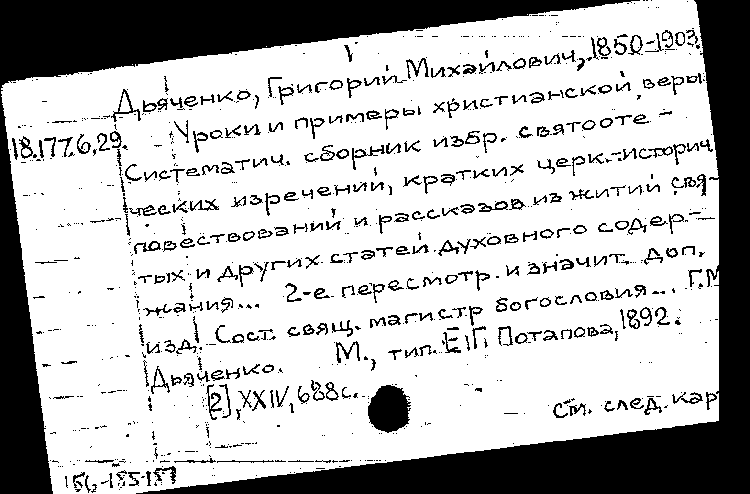 Дьяченко, Григорий Михайлович, 1850-1903.
18.177.6.29. Уроки и примеры христианской веры
Систематич. сборник избр. святооте-
ческих изречений, кратких церк.-историч
повествований и рассказов из житий свя-
тых и других статей духовного содер-
жания... 2-е пересмотр. и значит. доп.
изд. Сост. свящ. магистр богословия... Г.М
Дьяченко. М., тип. Е.Г. Потапова, 1892.
[2], XXIV, 688 с.
См. след. кар
156-185-187